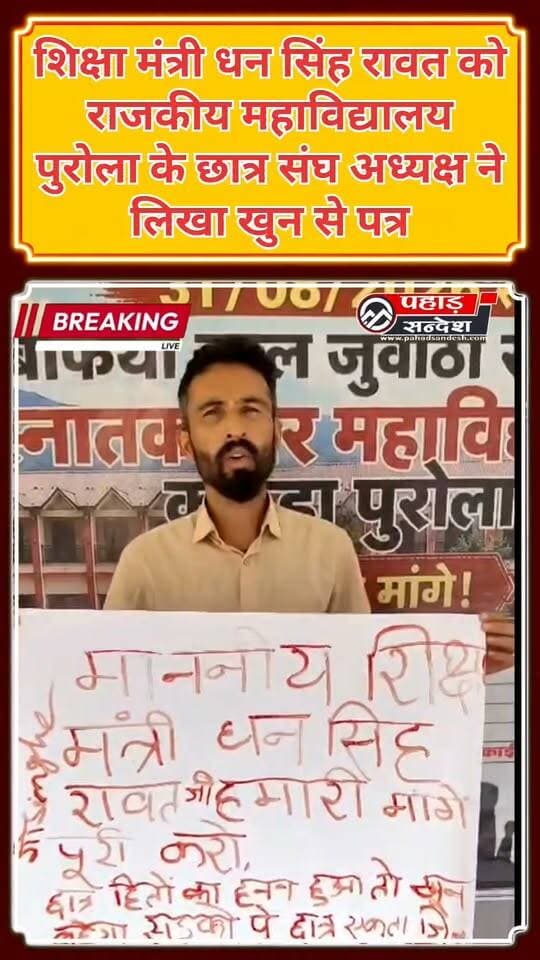 शिक्षा मंत्री धन सिंह रावत को
राजकीय महाविद्यालय
पुरोला के छात्र संघ अध्यक्ष ने
लिखा खुन से पत्र
BREAKING
LIVE
पहाड़
सन्देश
www.pahadsandesh.com
31/08/2026
बर्फिया ल जुवांठा
स्नातक र महावि
पुरोला
मांगे!
माननीय शिक्षा
मंत्री धन सिंह
रावत जी हमारी मांगे
पूरी करो,
छात्र हितों का हनन हुआ तो खून
सड़को पे छात्र एकता जि